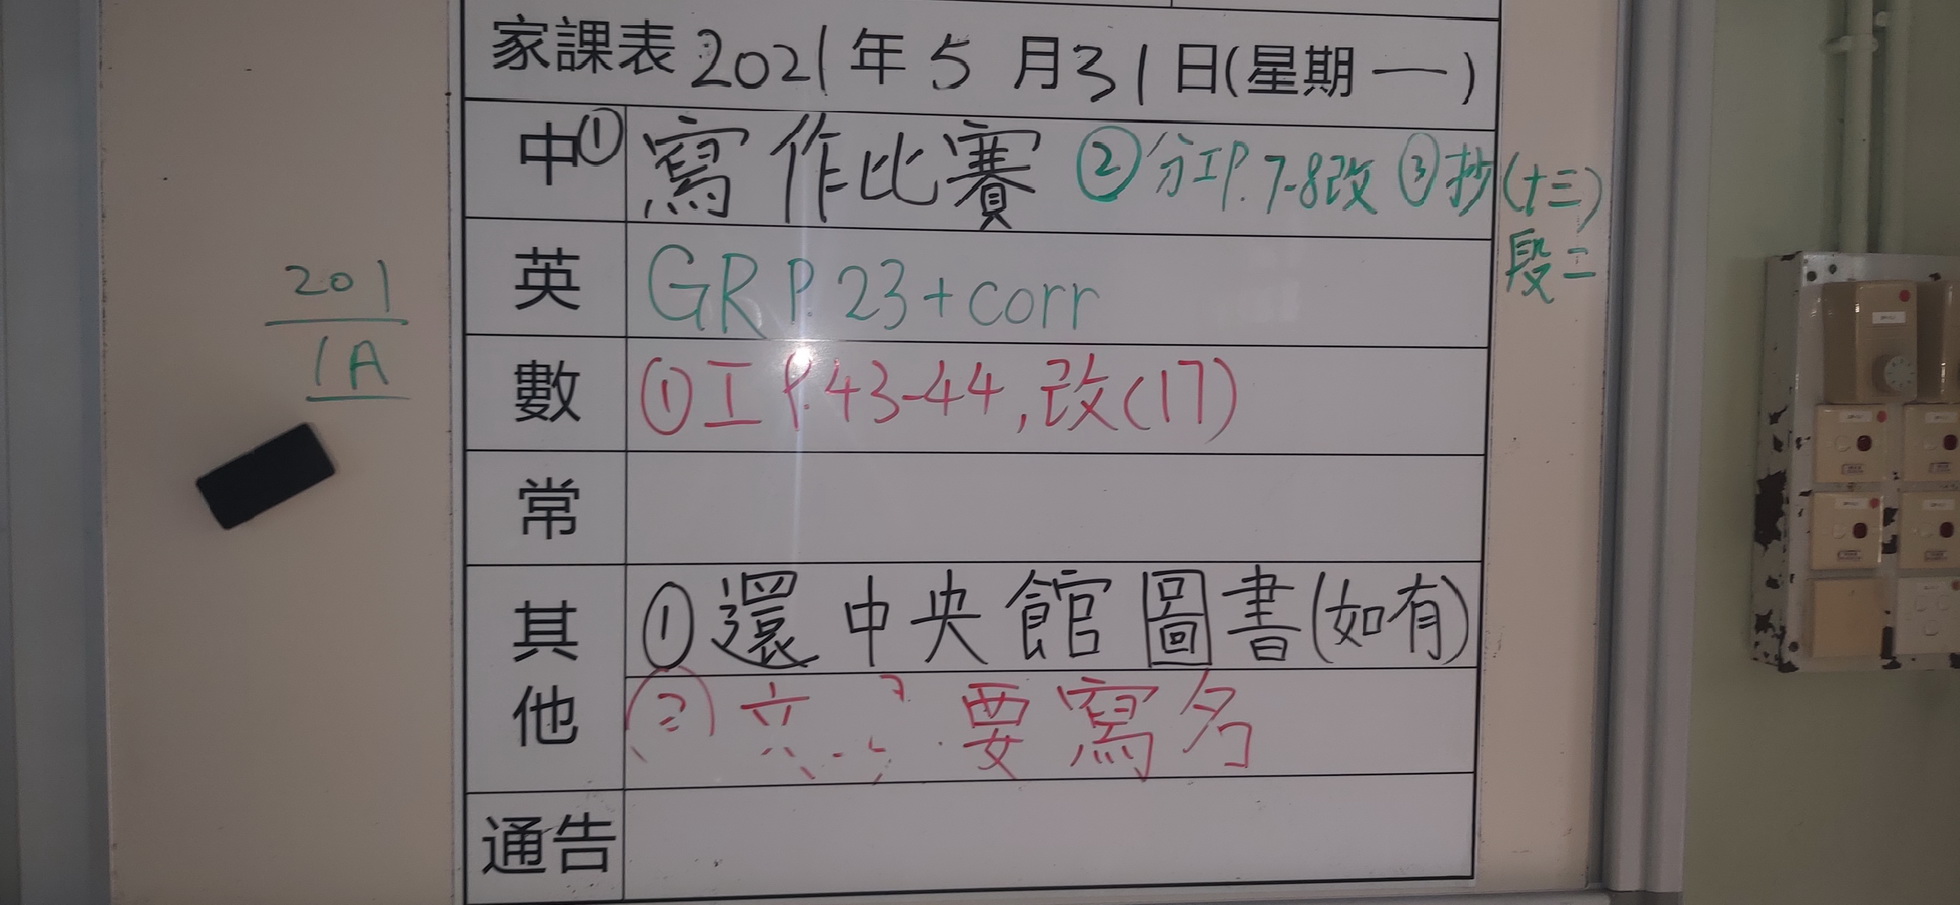 家課表 2021年5月31日(星期一)
中 ①寫作比賽 ②分工P.7-8改 ③抄(十三)
段二
英 GR P.23+corr
201
1A
數 ①工P.43-44,改(17)
常
其他 ①還中央館圖書(如有)
② 要寫名
通告